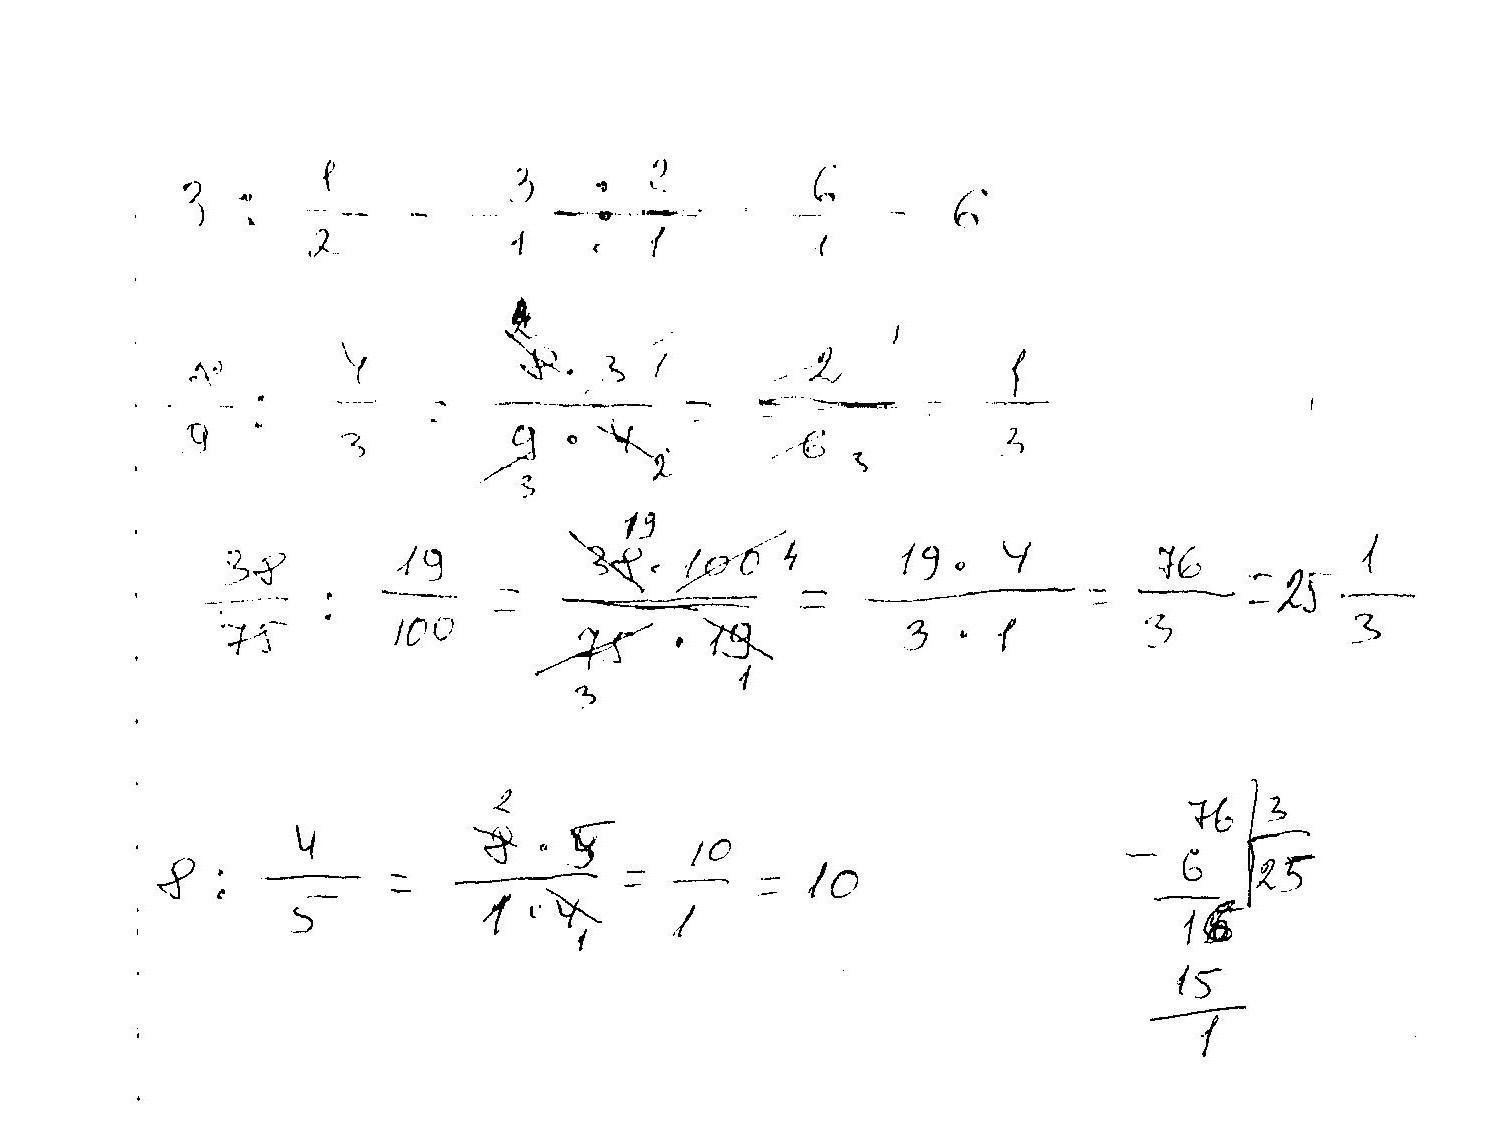 3 : 1/2 - 3/1 : 2/1 - 6/1 - 6
/9 : 4/3 = . 3 1 / 9 3 . 4 2 = 2 1 / 6 3 - 1/3
38/75 : 19/100 = 38 19 . 100 4 / 75 3 . 19 1 = 19 . 4 / 3 . 1 = 76/3 = 25 1/3
8 : 4/5 = 8 2 . 5 / 1 . 4 1 = 10/1 = 10
76 | 3
- 6 | 25
16
15
1